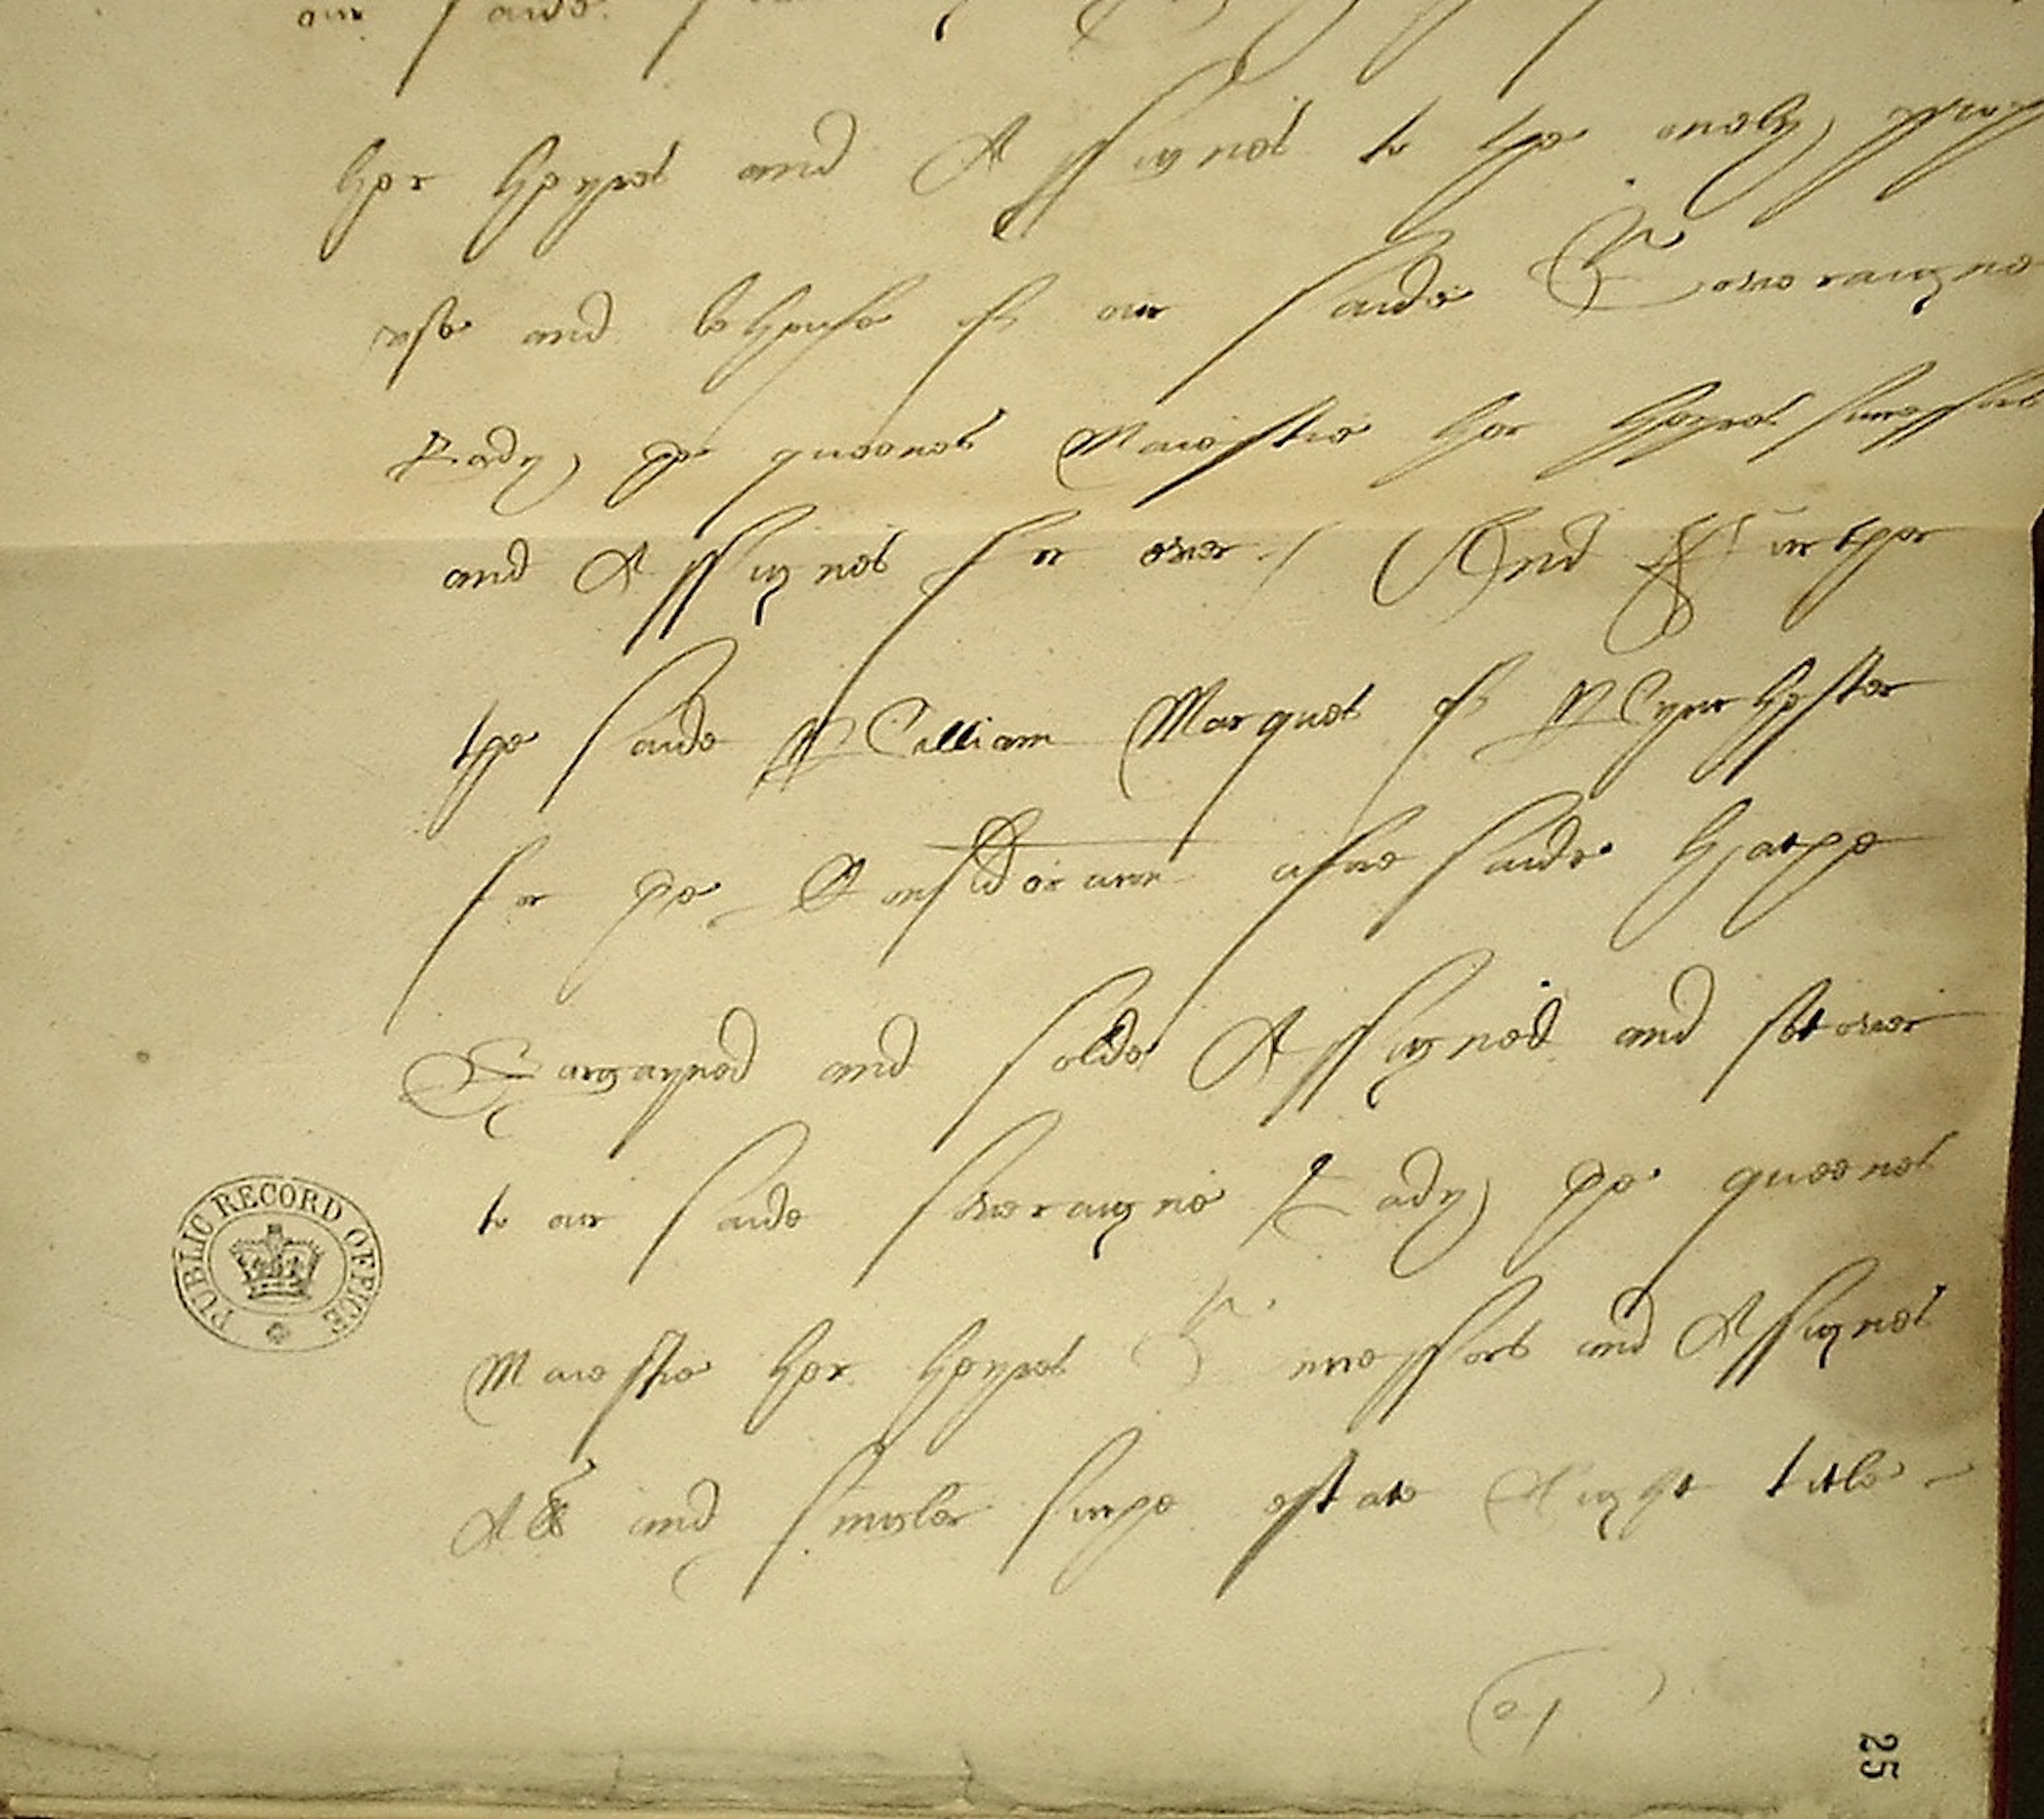 our saide
her heyres and Assignes to the onely
vse and behoufe of our saide Soueraigne
Lady the quenes Maiestie her heyres
and Assignes for euer / And Further
the saide William Marques of Wynchester
for the Consideracon afore saide hathe
Bargayned and solde Assigned and set ouer
to our saide soueraigne Lady the quenes
Maiestie her heyres Successors and Assignes
All and suche estate Right title
PUBLIC RECORD OFFICE
25